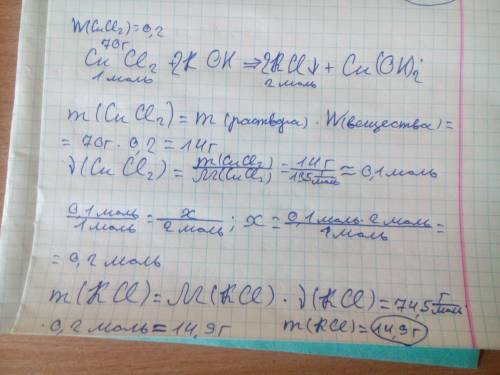 W(CuCl₂)=0,2
70г
CuCl₂ + 2KOH ⇒ 2KCl↓ + Cu(OH)₂
1 моль 2 моль
m(CuCl₂) = m(раствора) · W(вещества) =
= 70г · 0,2 = 14г
ν(CuCl₂) = m(CuCl₂)/M(CuCl₂) = 14г/135г/моль ≈ 0,1 моль
0,1 моль/1 моль = x/2 моль; x = 0,1 моль · 2 моль/1 моль =
= 0,2 моль
m(KCl) = M(KCl) · ν(KCl) = 74,5 г/моль ·
· 0,2 моль = 14,9г m(KCl) = 14,9г